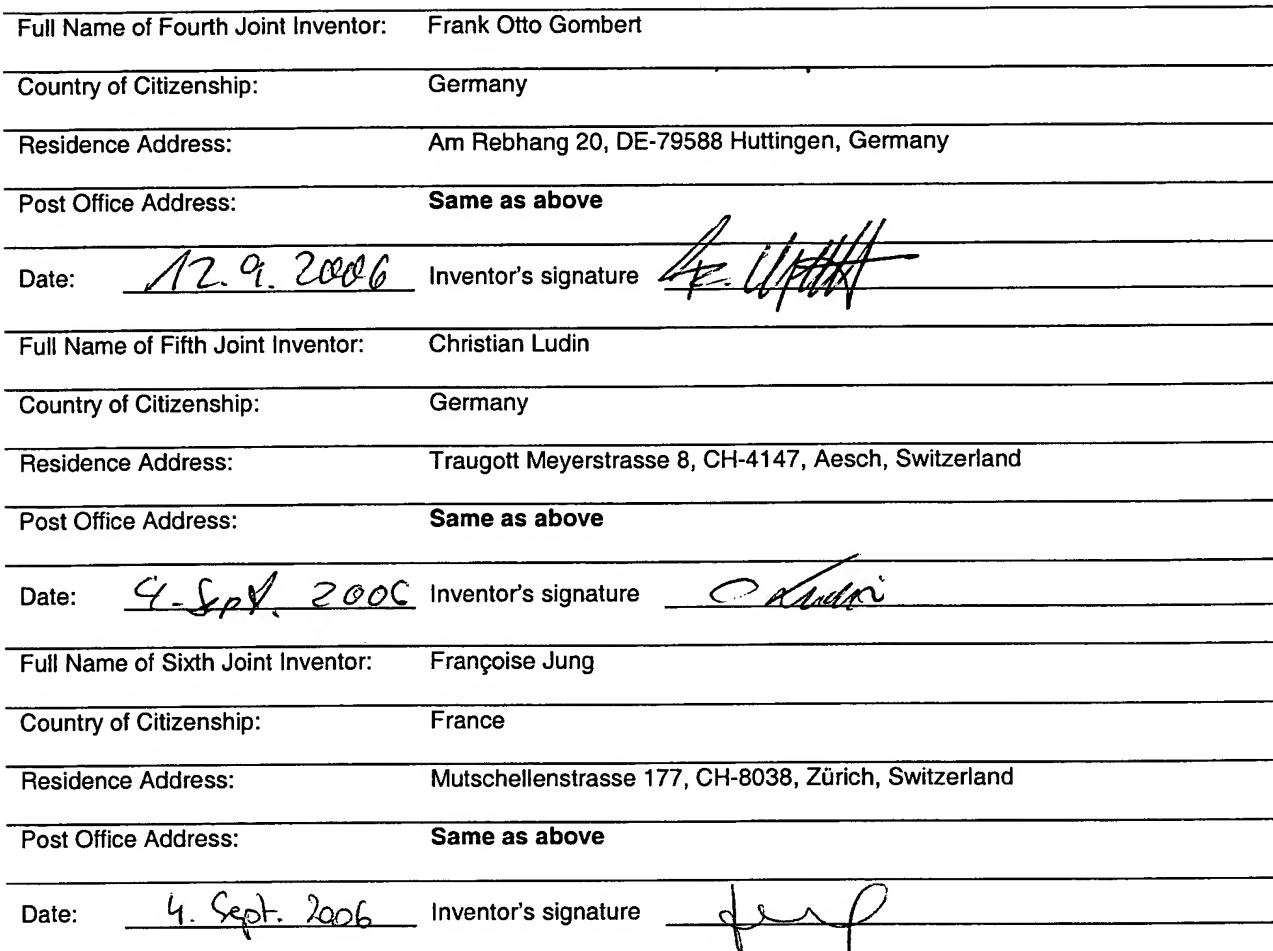 Full Name of Fourth Joint Inventor: Frank Otto Gombert
Country of Citizenship: Germany
Residence Address: Am Rebhang 20, DE-79588 Huttingen, Germany
Post Office Address: Same as above
Date: 12.9.2006 Inventor's signature
Full Name of Fifth Joint Inventor: Christian Ludin
Country of Citizenship: Germany
Residence Address: Traugott Meyerstrasse 8, CH-4147, Aesch, Switzerland
Post Office Address: Same as above
Date: Sept. 2006 Inventor's signature C Ludin
Full Name of Sixth Joint Inventor: Françoise Jung
Country of Citizenship: France
Residence Address: Mutschellenstrasse 177, CH-8038, Zürich, Switzerland
Post Office Address: Same as above
Date: 4. Sept. 2006 Inventor's signature Jung